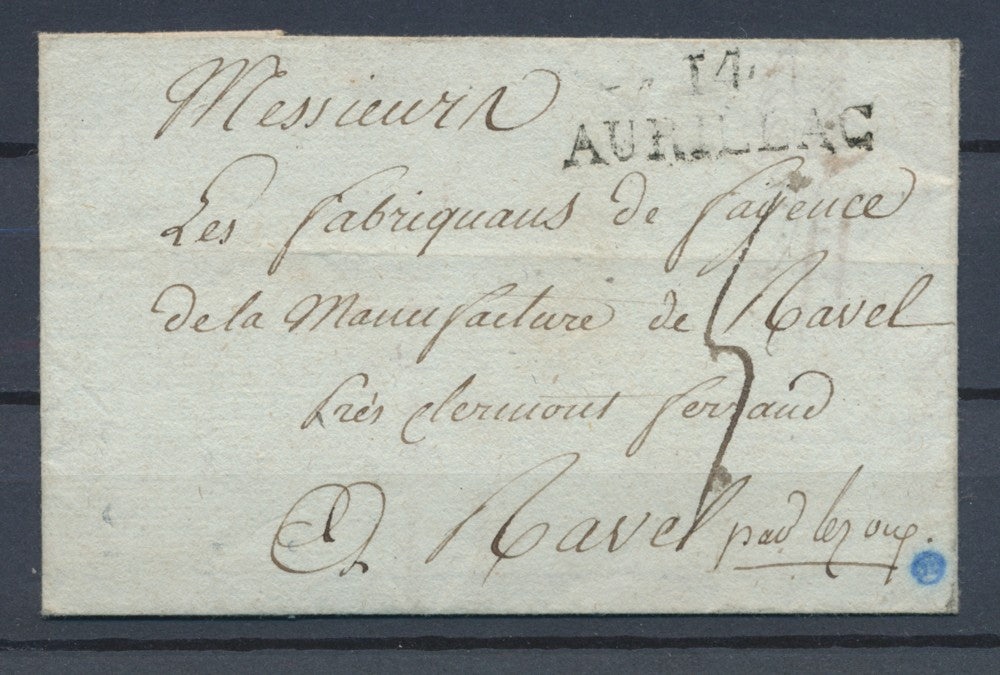 14
AURILLAC
Messieurs
Les fabriquans de fayence
de la Manufacture de Ravel
prés clermont ferrand
A Ravel par lezoux.